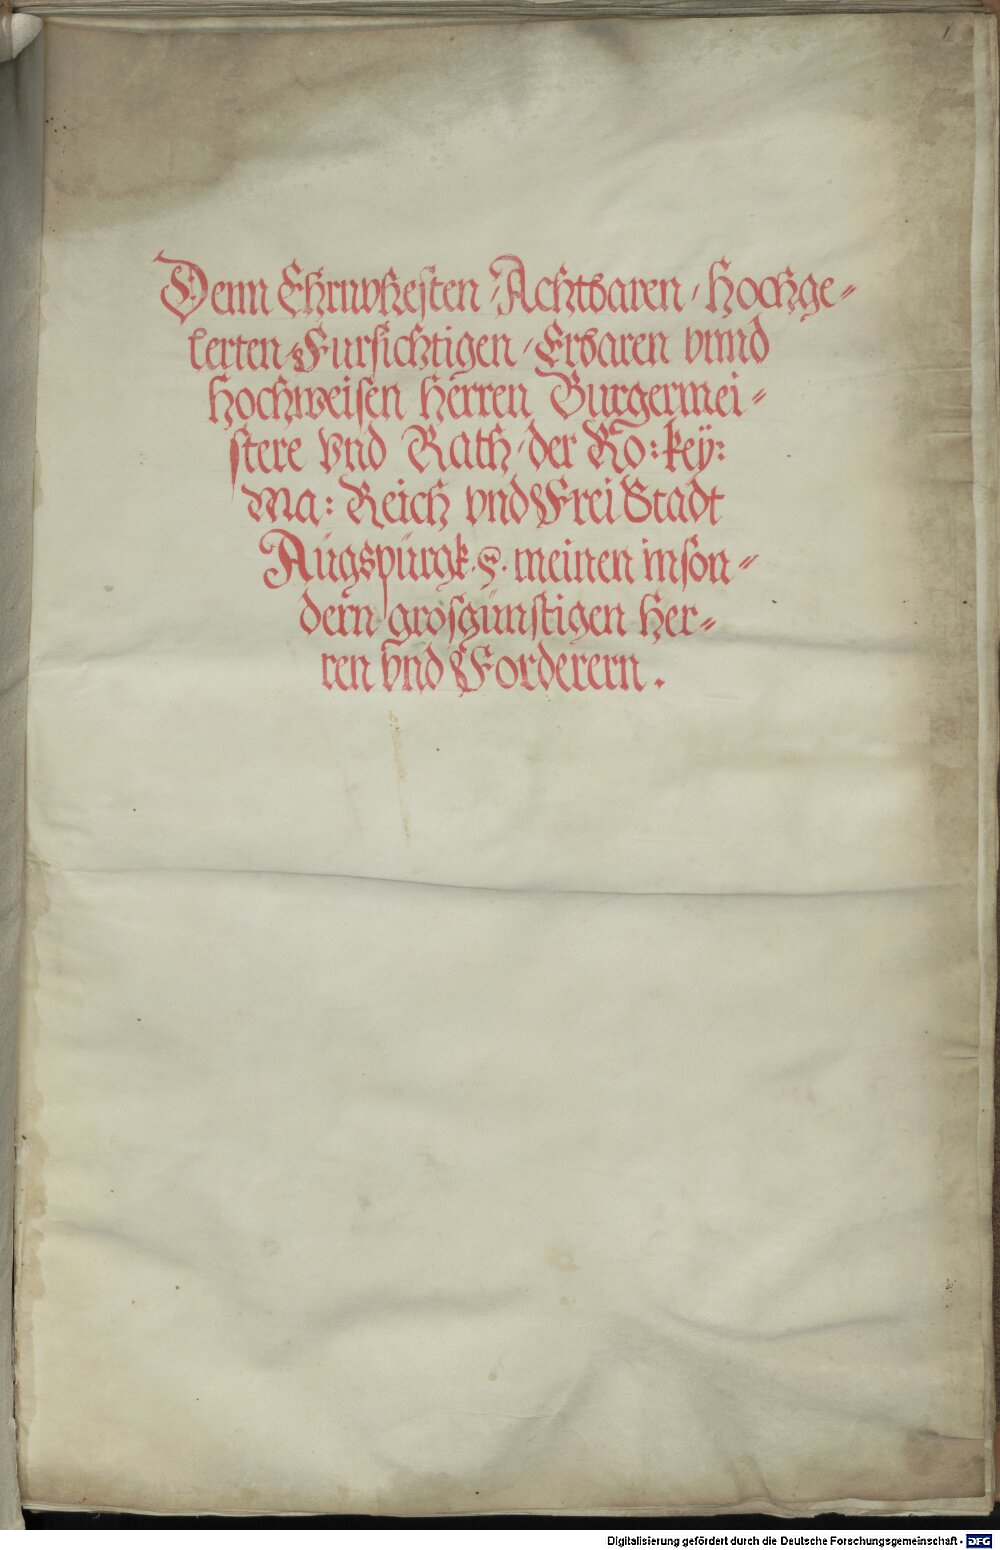 1
Denn Ehrnvhesten / Achtbaren / Hochge⸗
lerten / Fursichtigen / Erbaren vnnd
Hochweisen Herren Burgermei⸗
stere vnd Rath / der Ro: keÿ:
Ma: Reich vnd Frei Stadt
Augspurgk .ꝛc. meinen inson⸗
dern grosgünstigen Her⸗
ren vnd Forderern .
Digitalisierung gefördert durch die Deutsche Forschungsgemeinschaft - DFG